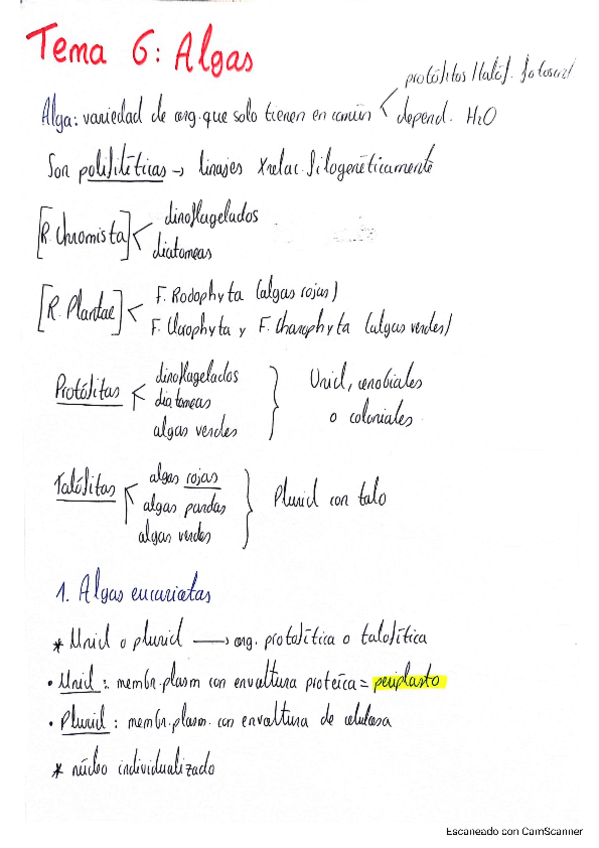 Tema 6: Algas
protófitos / talóf. fotosint/
Alga: variedad de org. que solo tienen en común < depend. H2O
Son polifiléticas → linajes X relac. filogenéticamente
[R. Chromista] < dinoflagelados
diatomeas
[R. Plantae] < F. Rodophyta (algas rojas)
F. Clorophyta y F. Charophyta (algas verdes)
Protófitas < dinoflagelados
diatomeas
algas verdes
} Unicel, cenobiales
o coloniales
Talófitas < algas rojas
algas pardas
algas verdes
} Pluricel con talo
1. Algas eucariotas
* Unicel o pluricel → org. protofítica o talofítica
• Unicel: membr. plasm con envoltura proteica = periplasto
• Pluricel: membr. plasm. con envoltura de celulosa
* núcleo individualizado
Escaneado con CamScanner